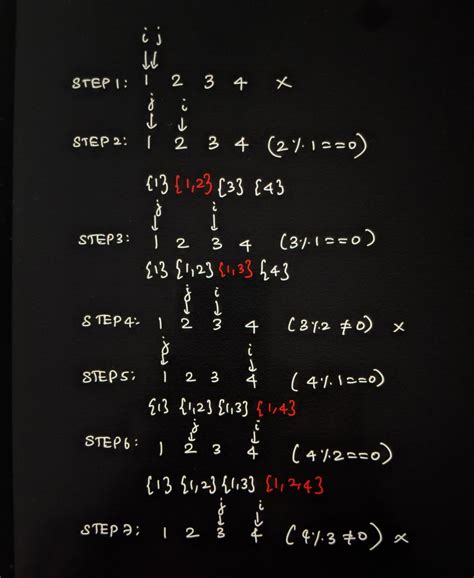 i j
↓↓
STEP 1: 1 2 3 4 x
j i
↓ ↓
STEP 2: 1 2 3 4 (2%1==0)
{1} {1,2} {3} {4}
j i
↓ ↓
STEP3: 1 2 3 4 (3%1==0)
{1} {1,2} {1,3} {4}
j i
↓ ↓
STEP4: 1 2 3 4 (3%2≠0) x
j i
↓ ↓
STEP5: 1 2 3 4 (4%1==0)
{1} {1,2} {1,3} {1,4}
j i
↓ ↓
STEP6: 1 2 3 4 (4%2==0)
{1} {1,2} {1,3} {1,2,4}
j i
↓ ↓
STEP 7: 1 2 3 4 (4%3≠0) x